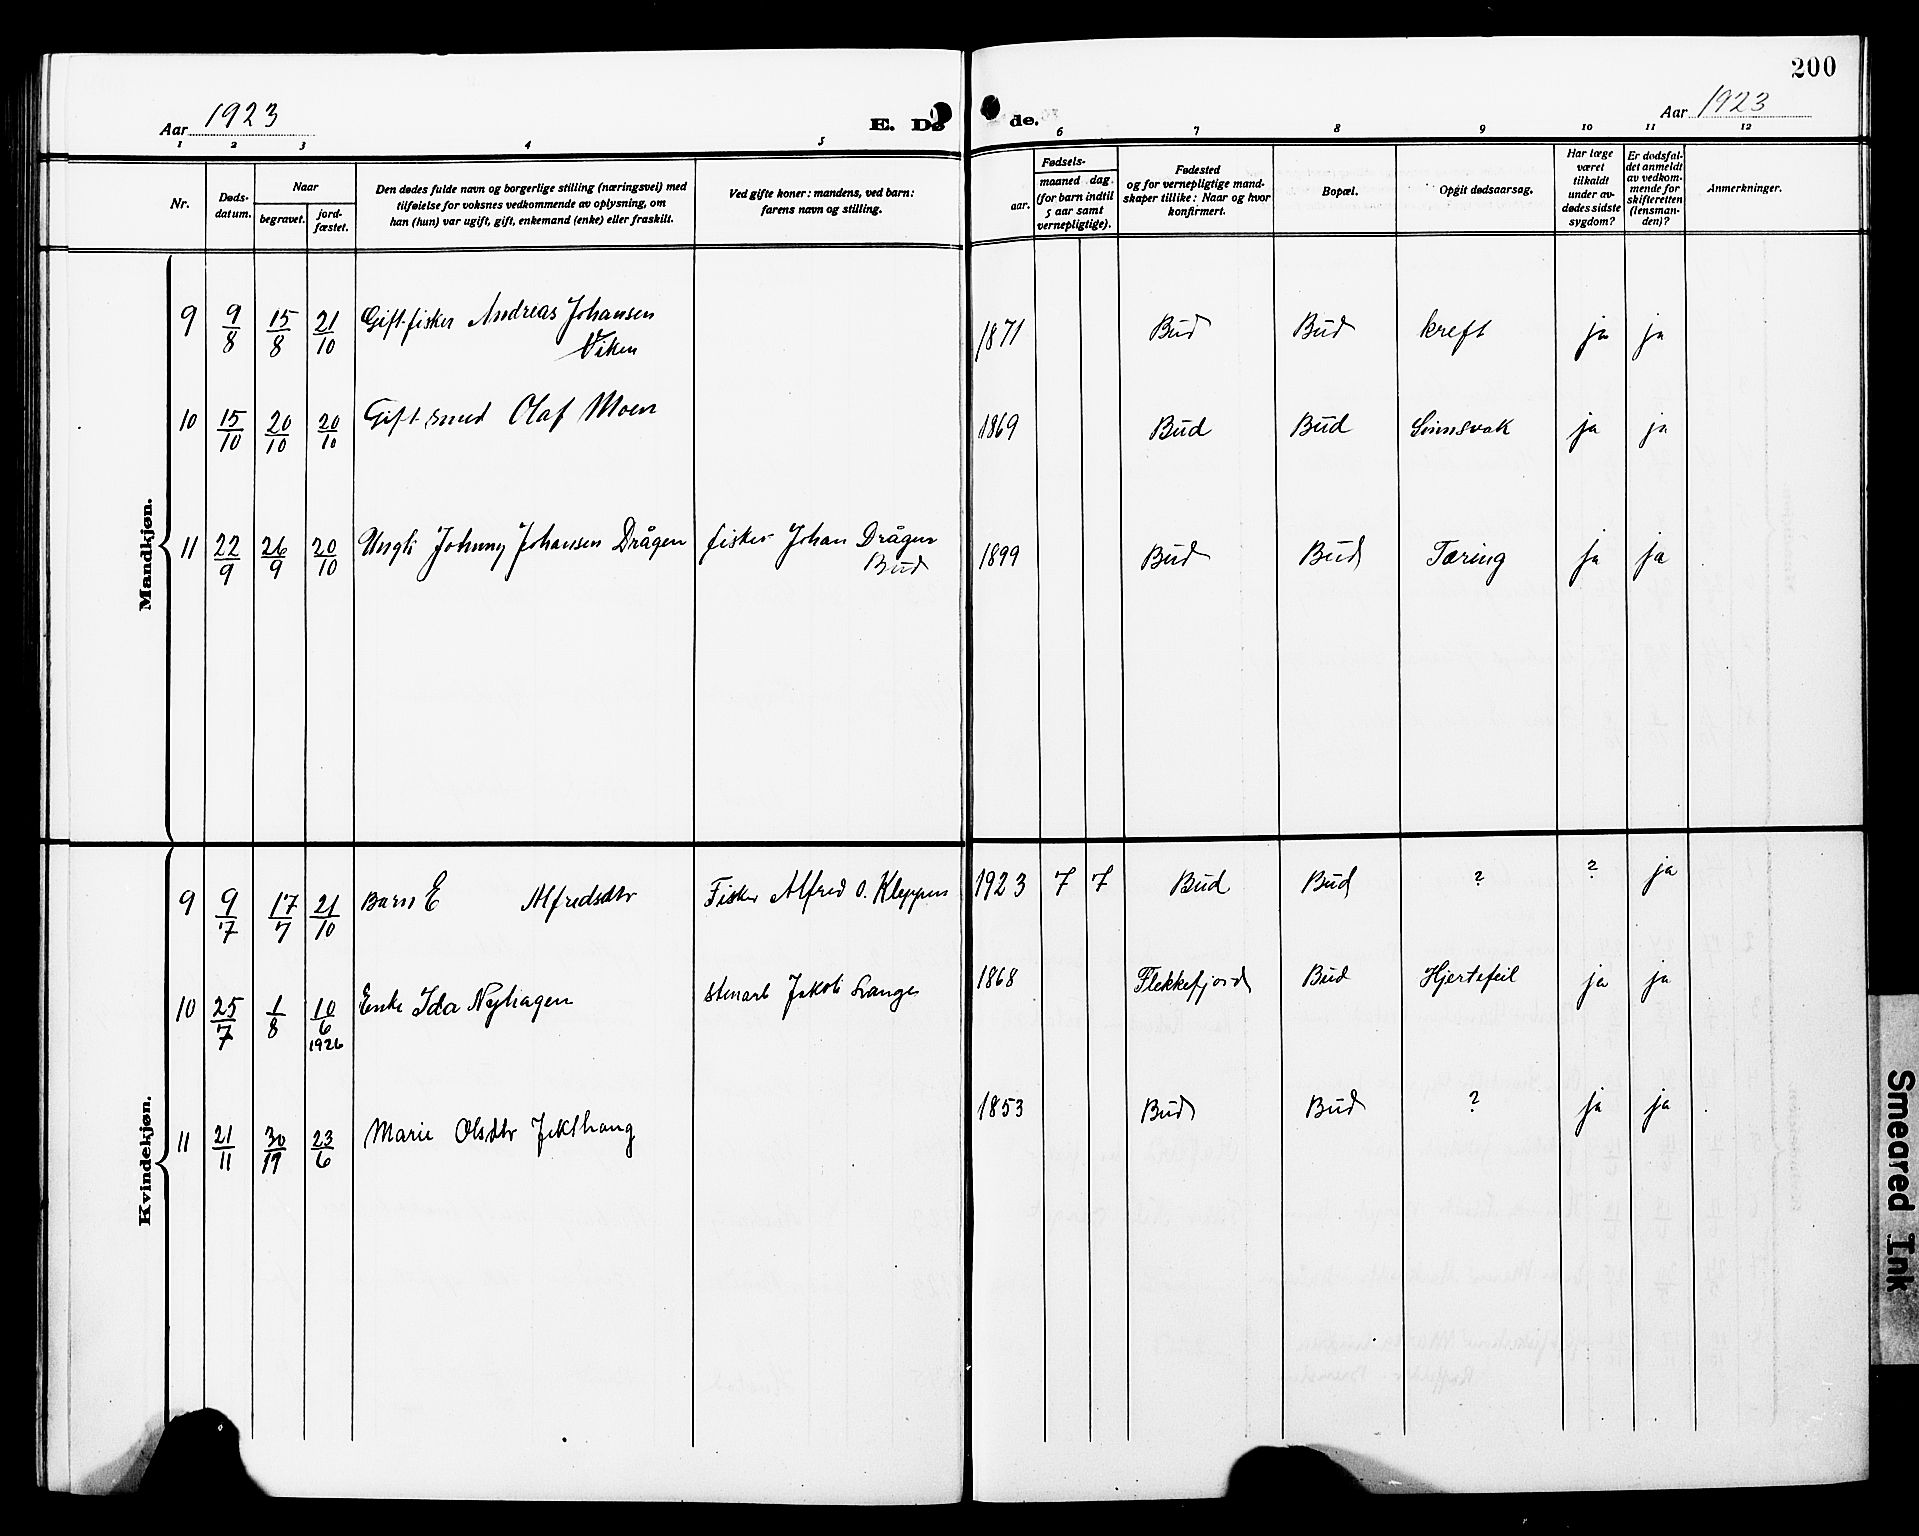 200
Aar 1923
E. Dø
de.
Aar 1923
1 2 3 4 5 6 7 8 9 10 11 12
Nr.
Døds-
datum.
Naar
begravet.
jord-
fæstet.
Den dødes fulde navn og borgerlige stilling (næringsvei) med
tilføielse for voksnes vedkommende av oplysning, om
han (hun) var ugift, gift, enkemand (enke) eller fraskilt.
Ved gifte koner: mandens, ved barn:
farens navn og stilling.
Fødsels-
aar.
maaned dag.
(for barn indtil
5 aar samt
vernepligtige).
Fødested
og for vernepligtige mand-
skaper tillike: Naar og hvor
konfirmert.
Bopæl.
Opgit dødsaarsag.
Har læge
været
tilkaldt
under av-
dødes sidste
sygdom?
Er dødsfal-
det anmeldt
av vedkom-
mende for
skifteretten
(lensman-
den)?
Anmerkninger.
Mandkjøn.
9 9/8 15/8 21/10 Gift fisker Andreas Johansen 1871 Bud Bud kreft ja ja
Viken
10 15/10 20/10 20/10 Gift smed Olaf Moen 1869 Bud Bud Sinnsvak ja ja
11 22/9 26/9 20/10 Ungk Johnny Johansen Drågen fisker Johan Drågen 1899 Bud Bud Tæring ja ja
Bud
Kvindekjøn.
9 9/7 17/7 21/10 Barn E Alfredsdtr Fisker Alfred O. Kleppen 1923 7 7 Bud Bud ? ? ja
10 25/7 1/8 10/6 Enke Ida Nyhagen Jakob 1868 Flekkefjord Bud Hjertefeil ja ja
1926
11 21/11 30/11 23/6 Marie Olsdtr 1853 Bud Bud ? ja ja
Smeared Ink